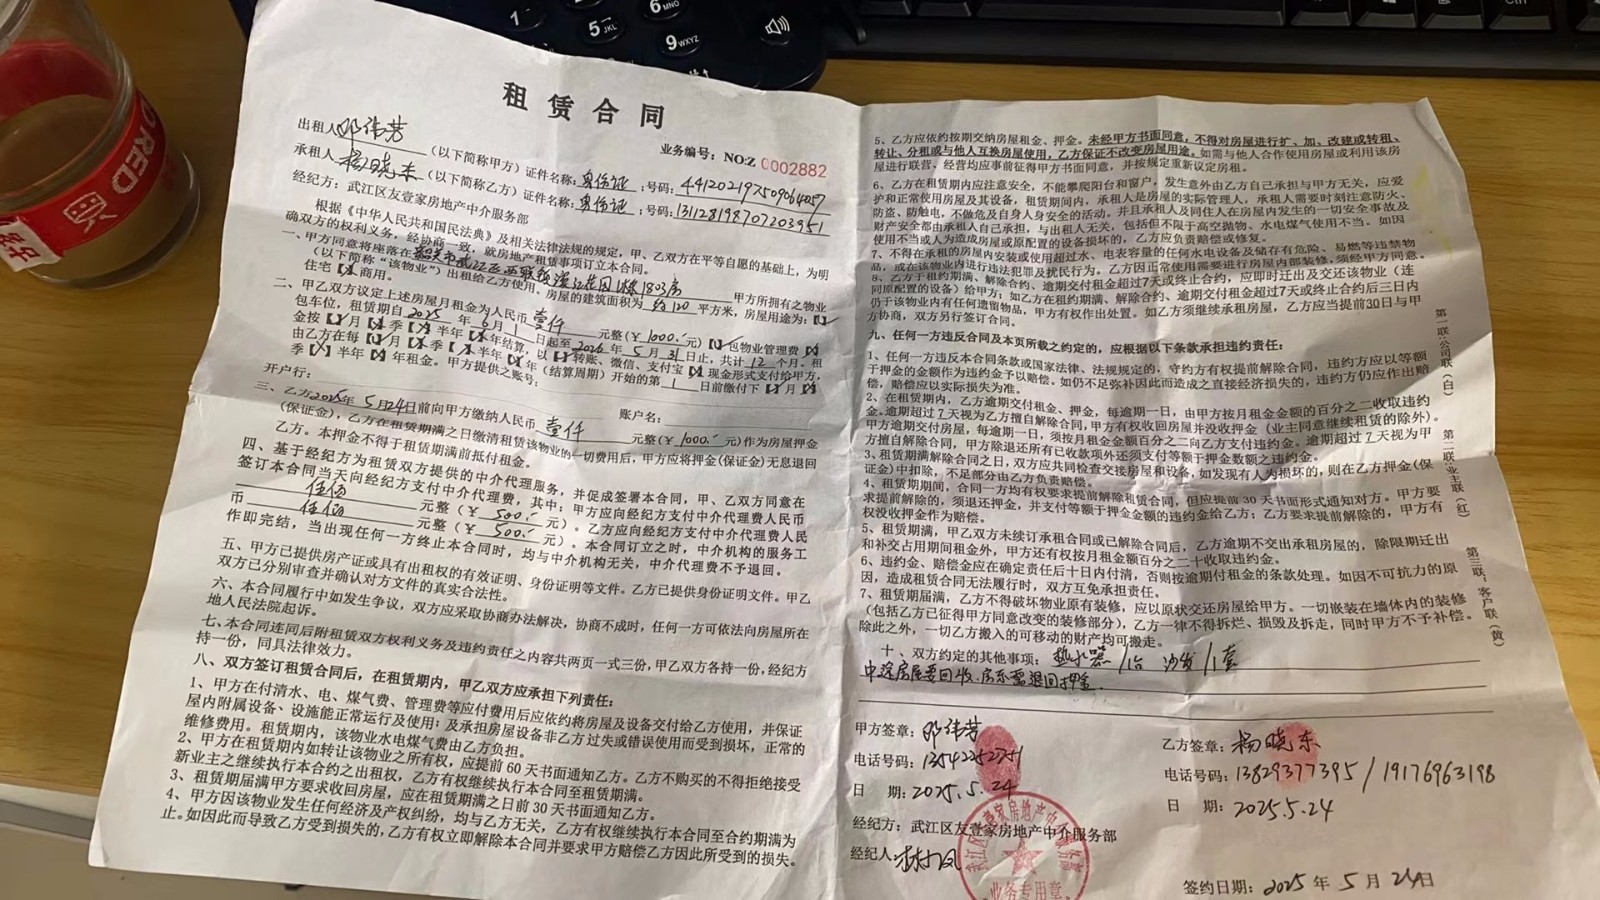 1
5 JKL
6 MNO
9 WXYZ
Ctrl
RED
租赁合同
业务编号：NO:Z 0002882
出租人邓伟芳（以下简称甲方）证件名称：身份证；号码：441202197509064027
承租人杨晓东（以下简称乙方）证件名称：身份证；号码：131128198707203951
经纪方：武江区友壹家房地产中介服务部
根据《中华人民共和国民法典》及相关法律法规的规定，甲、乙双方在平等自愿的基础上，为明
确双方的权利义务，经协商一致，就房地产租赁事项订立本合同。
一、甲方同意将座落在韶关市武江区西联镇 花园 栋1803房 甲方所拥有之物业
（以下简称“该物业”）出租给乙方使用、房屋的建筑面积为 约120 平方米，房屋用途为：【】
住宅【】商用。
二、甲乙双方议定上述房屋月租金为人民币 壹仟 元整（￥1000.- 元）【】包物业管理费【】
包车位，租赁期自2025年6月1日起至2026年5月31日止，共计12个月。租
金按【】月【】季【】半年【】年结算，以【】转账、微信、支付宝【】现金形式支付给甲方，
由乙方在每【】月【】季【】半年【】年（结算周期）开始的第 1 日前缴付下【】月【】
季【】半年【】年租金。甲方提供之账号：
开户行： 账户名：
三、乙方2025年5月24日前向甲方缴纳人民币 壹仟 元整（￥1000.- 元）作为房屋押金
（保证金），乙方在租赁期满之日缴清租赁该物业的一切费用后，甲方应将押金（保证金）无息退回
乙方。本押金不得于租赁期满前抵付租金。
四、基于经纪方为租赁双方提供的中介代理服务，并促成签署本合同，甲、乙双方同意在
签订本合同当天向经纪方支付中介代理费，其中：甲方应向经纪方支付中介代理费人民币
伍佰 元整（￥500.- 元）。乙方应向经纪方支付中介代理费人民
币 伍佰 元整（￥500.- 元）。本合同订立之时，中介机构的服务工
作即完结，当出现任何一方终止本合同时，均与中介机构无关，中介代理费不予退回。
五、甲方已提供房产证或具有出租权的有效证明、身份证明等文件。乙方已提供身份证明文件。甲乙
双方已分别审查并确认对方文件的真实合法性。
六、本合同履行中如发生争议，双方应采取协商办法解决，协商不成时，任何一方可依法向房屋所在
地人民法院起诉。
七、本合同连同后附租赁双方权利义务及违约责任之内容共两页一式三份，甲乙双方各持一份，经纪方
持一份，同具法律效力。
八、双方签订租赁合同后，在租赁期内，甲乙双方应承担下列责任：
1、甲方在付清水、电、煤气费、管理费等应付费用后应依约将房屋及设备交付给乙方使用，并保证
屋内附属设备、设施能正常运行及使用；及承担房屋设备非乙方过失或错误使用而受到损坏，正常的
维修费用。租赁期内，该物业水电煤气费由乙方负担。
2、甲方在租赁期内如转让该物业之所有权，应提前60天书面通知乙方。乙方不购买的不得拒绝接受
新业主之继续执行本合约之出租权，乙方有权继续执行本合同至租赁期满。
3、租赁期届满甲方要求收回房屋，应在租赁期满之日前30天书面通知乙方。
4、甲方因该物业发生任何经济及产权纠纷，均与乙方无关，乙方有权继续执行本合同至合约期满为
止。如因此而导致乙方受到损失的，乙方有权立即解除本合同并要求甲方赔偿乙方因此所受到的损失。
5、乙方应依约按期交纳房屋租金、押金。未经甲方书面同意，不得对房屋进行扩、加、改建或转租、
转让、分租或与他人互换房屋使用，乙方保证不改变房屋用途。如需与他人合作使用房屋或利用该房
屋进行联营、经营均应事前征得甲方书面同意，并按规定重新议定房租。
6、乙方在租赁期内应注意安全，不能攀爬阳台和窗户，发生意外由乙方自己承担与甲方无关，应爱
护和正常使用房屋及其设备，租赁期间内，承租人是房屋的实际管理人，承租人需要时刻注意防火、
防盗、防触电，不做危及自身人身安全的活动。并且承租人及同住人在房屋内发生的一切安全事故及
财产安全都由承租人自己承担，与出租人无关，包括但不限于高空抛物、水电煤气使用不当。如因
使用不当或人为造成房屋或原配置的设备损坏的，乙方应负责赔偿或修复。
7、不得在承租的房屋内安装或使用超过水、电表容量的任何水电设备及储存有危险、易燃等违禁物
品，或在该物业内进行违法犯罪及扰民行为。乙方因正常使用需要进行房屋内部装修，须经甲方同意。
8、乙方于租约期满、解除合约、逾期交付租金超过7天或终止合约，应即时迁出及交还该物业（连
同原配置的设备）给甲方；如乙方在租约期满、解除合约、逾期交付租金超过7天或终止合约后三日内
仍于该物业内有任何遗留物品，甲方有权作出处置。如乙方须继续承租房屋，乙方应当提前30日与甲
方协商，双方另行签订合同。
九、任何一方违反合同及本页所载之约定的，应根据以下条款承担违约责任：
1、任何一方违反本合同条款或国家法律、法规规定的，守约方有权提前解除合同，违约方应以等额
于押金的金额作为违约金予以赔偿。如仍不足弥补因此而造成之直接经济损失的，违约方仍应作出赔
偿，赔偿应以实际损失为准。
2、在租赁期内，乙方逾期交付租金、押金，每逾期一日，由甲方按月租金金额的百分之二收取违约
金。逾期超过7天视为乙方擅自解除合同，甲方有权收回房屋并没收押金（业主同意继续租赁的除外）。
甲方逾期交付房屋，每逾期一日，须按月租金金额百分之二向乙方支付违约金。逾期超过7天视为甲
方擅自解除合同，甲方除退还所有已收款项外还须支付等额于押金数额之违约金。
3、租赁期满解除合同之日，双方应共同检查交接房屋和设备，如发现有人为损坏的，则在乙方押金（保
证金）中扣除，不足部分由乙方负责赔偿。
4、租赁期期间，合同一方均有权要求提前解除租赁合同，但应提前30天书面形式通知对方。甲方要
求提前解除的，须退还押金，并支付等额于押金金额的违约金给乙方；乙方要求提前解除的，甲方有
权没收押金作为赔偿。
5、租赁期满，甲乙双方未续订承租合同或已解除合同后，乙方逾期不交出承租房屋的，除限期迁出
和补交占用期间租金外，甲方还有权按月租金额百分之二十收取违约金。
6、违约金、赔偿金应在确定责任后十日内付清，否则按逾期付租金的条款处理。如因不可抗力的原
因，造成租赁合同无法履行时，双方互免承担责任。
7、租赁期届满，乙方不得破坏物业原有装修，应以原状交还房屋给甲方。一切嵌装在墙体内的装修
（包括乙方已征得甲方同意改变的装修部分），乙方一律不得拆烂、损毁及拆走，同时甲方不予补偿。
除此之外，一切乙方搬入的可移动的财产均可搬走。
十、双方约定的其他事项：热水器1台 沙发1套
中途房屋要回收，房东需退回押金
甲方签章：邓伟芳
电话号码：13542252351
日 期：2025.5.24
经纪方：武江区友壹家房地产中介服务部
经纪人：
乙方签章：杨晓东
电话号码：13829377395 / 19176963198
日 期：2025.5.24
签约日期：2025年5月24日
武江区友壹家房地产中介服务部
业务专用章
第一联：公司联（白）
第二联：业主联（红）
第三联：客户联（黄）